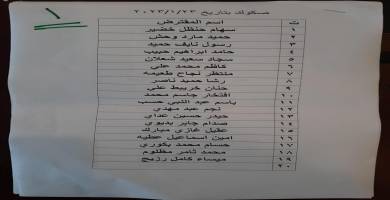 ١
صكوك بتاريخ ٢٠٢٣/١/٢٣
ت اسم المقترض
١ سهام حنظل خضير
٢ حميد مارد وحش
٣ رسول نايف حميد
٤ حامد ابراهيم حبيب
٥ سجاد سعيد شعلان
٦ كاظم محمد علي
٧ منتظر نجاح طعيمه
٨ رشا حميد ناصر
٩ حنان خريبط علي
١٠ افتخار جاسم محمد
١١ باسم عبد النبي حسب
١٢ نجم عبد مهدي
١٣ حيدر حسين عداي
١٤ صدام جابر بديوي
١٥ عقيل غازي مبارك
١٦ امين اسماعيل عطيه
١٧ حسام محمد بكوري
١٨ محمد ثامر مظلوم
١٩ ميساء كامل رزيج
٢٠